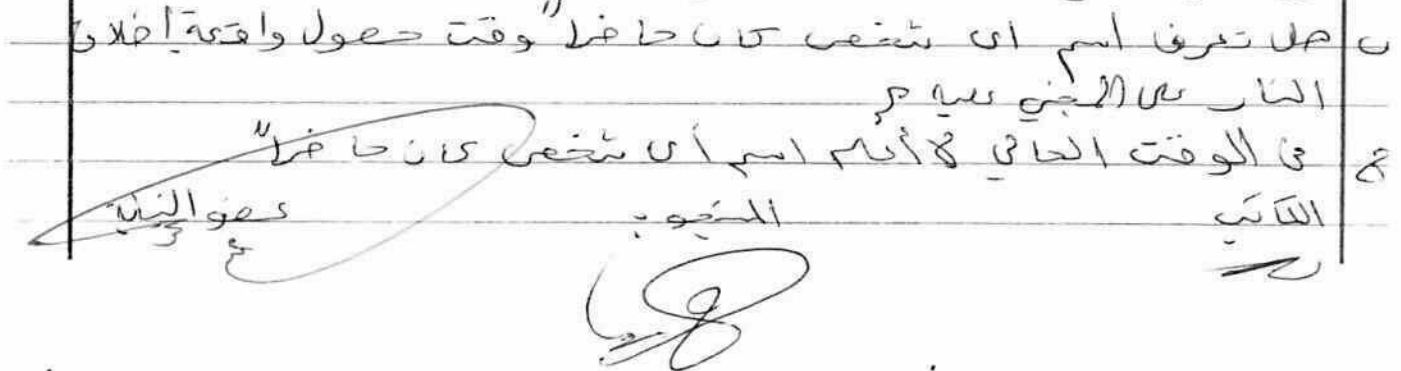 س هل تعرف اسم اى شخص كان حاضراً وقت حصول واقعة إطلاق
النار على المجني عليه ؟
ج فى الوقت الحالي لا أعلم اسم أى شخص كان حاضراً
الكاتب المستجوب عضو النيابة